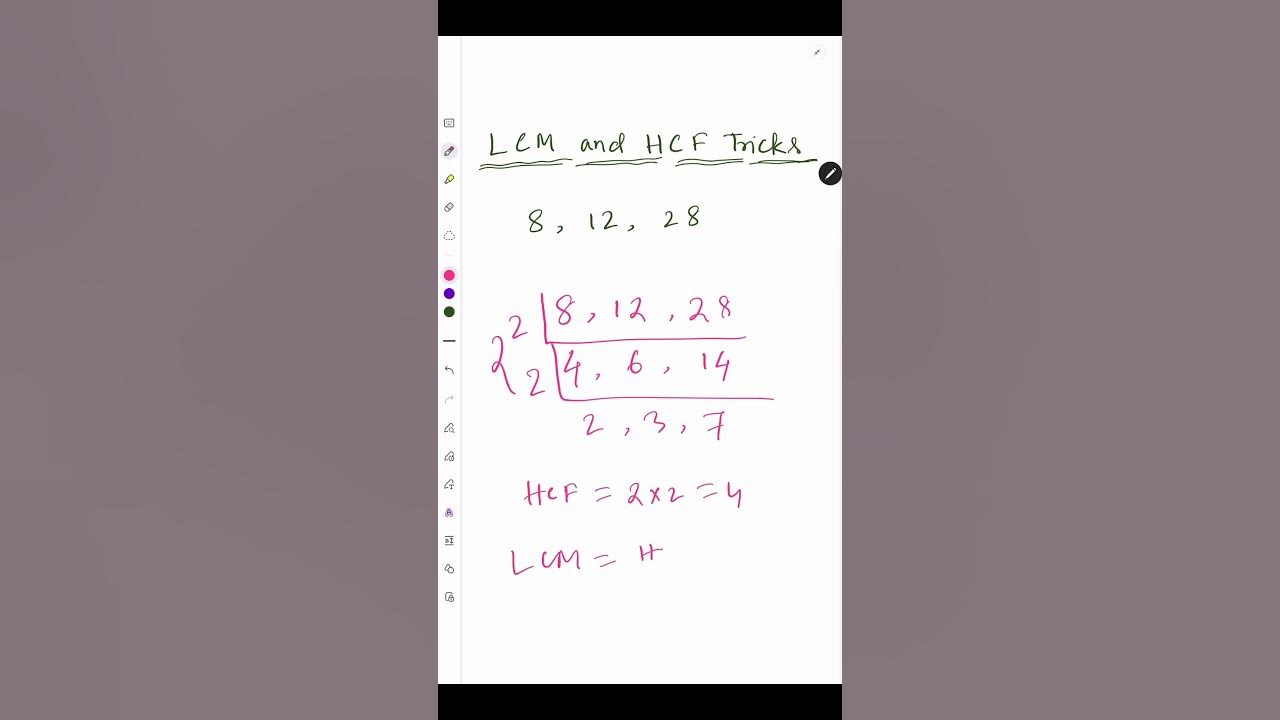 LCM and HCF Tricks
8, 12, 28
2 8, 12, 28
2 4, 6, 14
2, 3, 7
HCF = 2x2 = 4
LCM = H